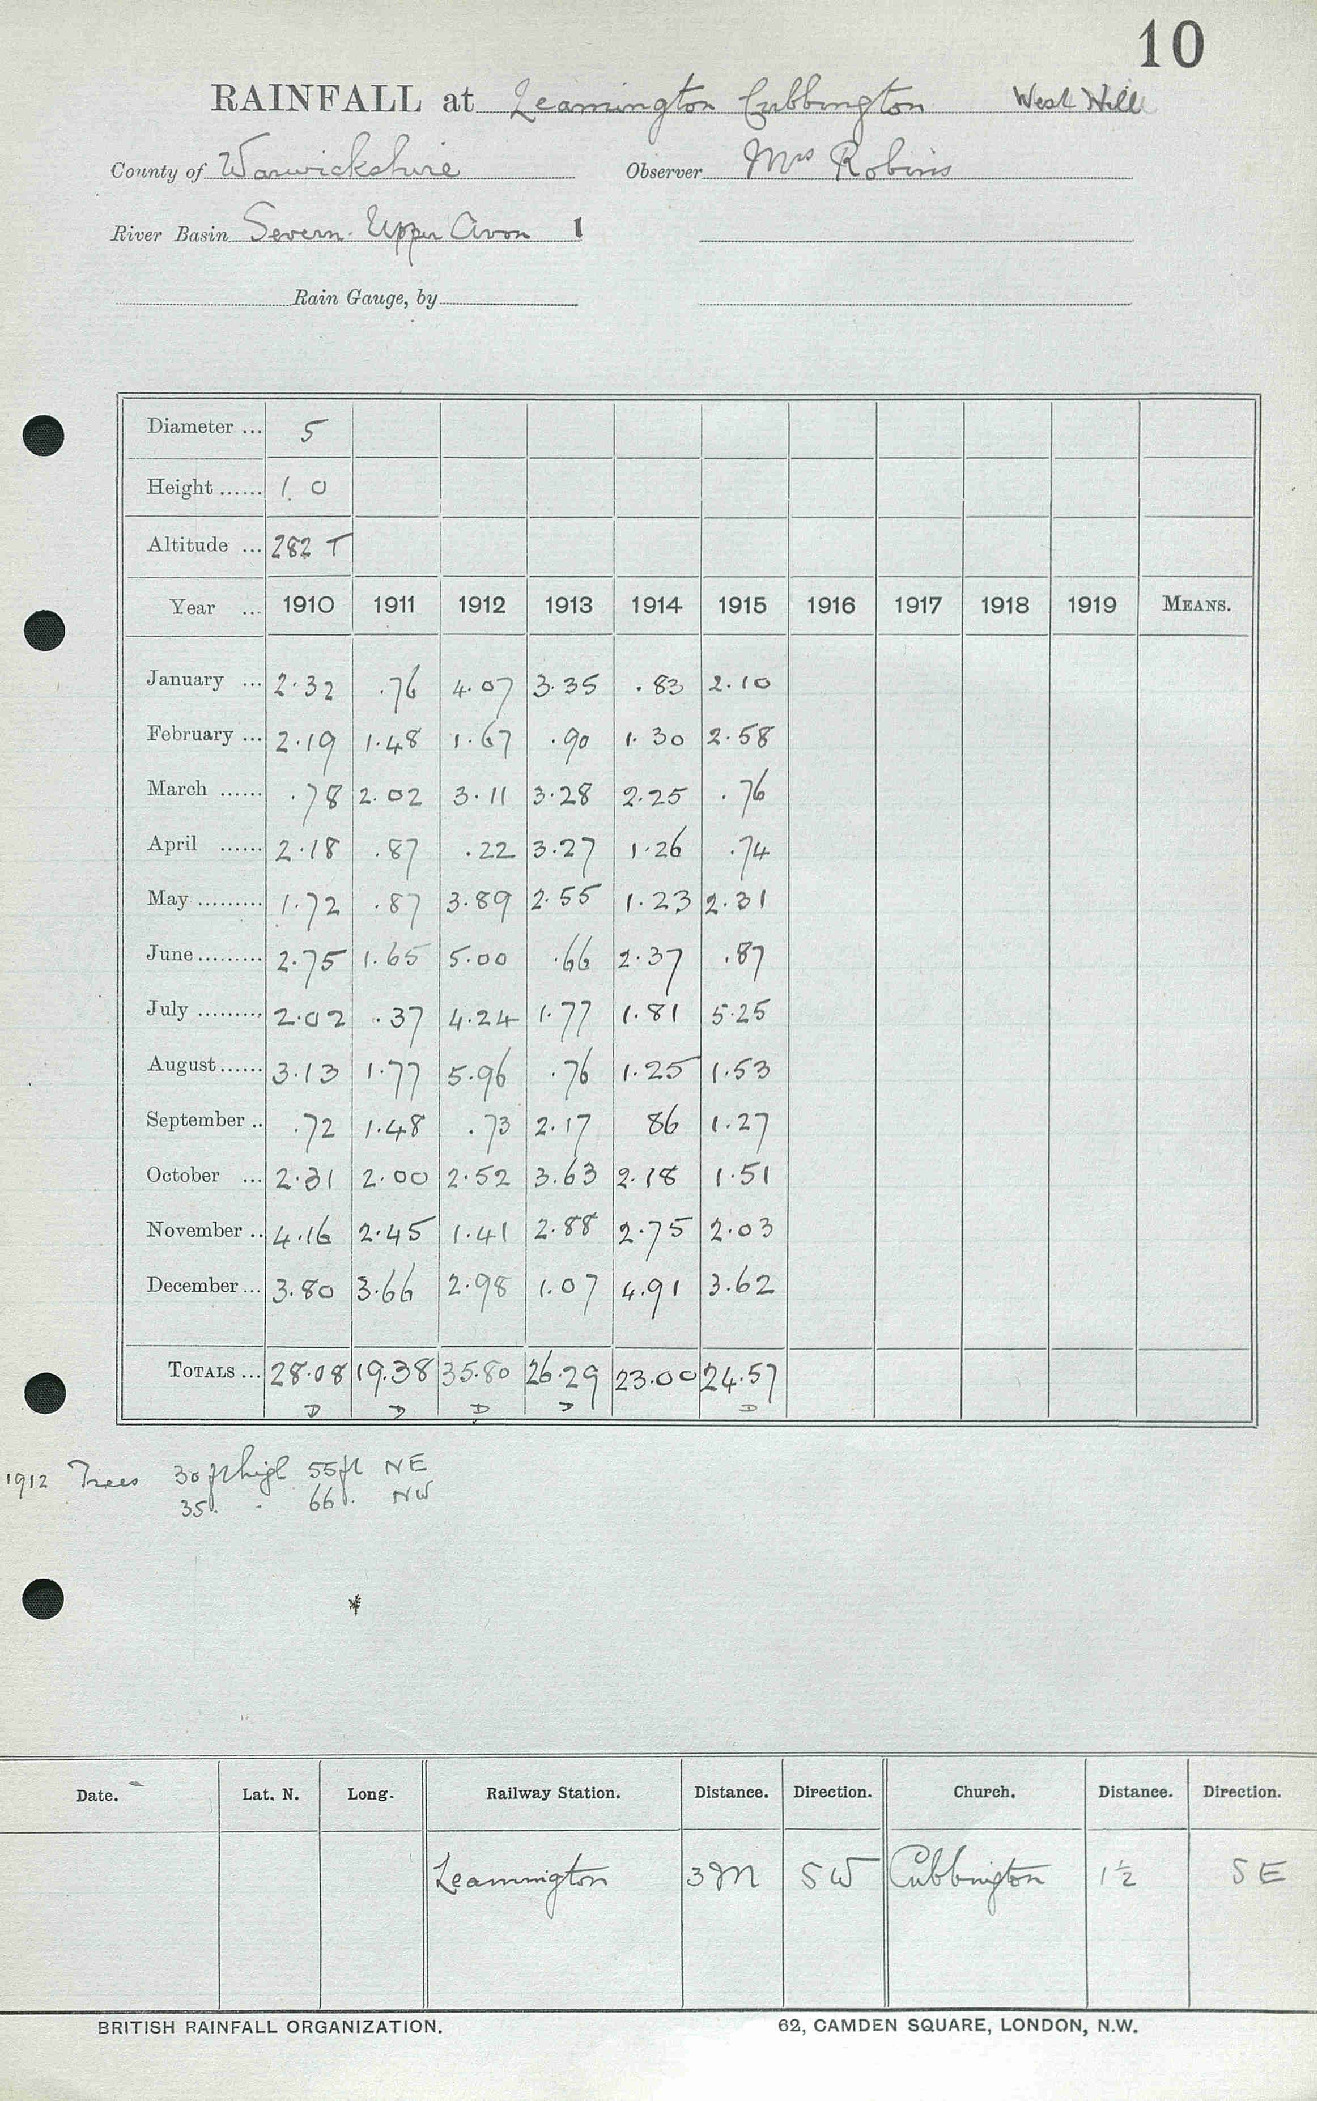 10
RAINFALL at Leamington Cubbington West Hill
County of Warwickshire Observer Mrs Robins
River Basin Severn. Upper Avon 1
Rain Gauge, by
Diameter ... 5
Height ...... 1. 0
Altitude ... 282 T
Year ... 1910 1911 1912 1913 1914 1915 1916 1917 1918 1919 MEANS.
January ... 2.32 .76 4.07 3.35 .83 2.10
February ... 2.19 1.48 1.67 .90 1.30 2.58
March ...... .78 2.02 3.11 3.28 2.25 .76
April ...... 2.18 .87 .22 3.27 1.26 .74
May ......... 1.72 .87 3.89 2.55 1.23 2.31
June ......... 2.75 1.65 5.00 .66 2.37 .87
July ......... 2.02 .37 4.24 1.77 1.81 5.25
August ...... 3.13 1.77 5.96 .76 1.25 1.53
September .. .72 1.48 .73 2.17 86 1.27
October ... 2.31 2.00 2.52 3.63 2.18 1.51
November .. 4.16 2.45 1.41 2.88 2.75 2.03
December ... 3.80 3.66 2.98 1.07 4.91 3.62
TOTALS ... 28.08 19.38 35.80 26.29 23.00 24.57
D D D D D
1912 Trees 30 ft high 55 ft NE
35 . . 66 . NW
Date. Lat. N. Long. Railway Station. Distance. Direction. Church. Distance. Direction.
Leamington 3M SW Cubbington 1½ SE
BRITISH RAINFALL ORGANIZATION. 62, CAMDEN SQUARE, LONDON, N.W.